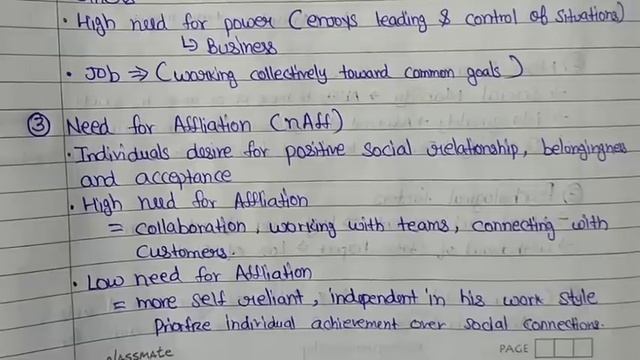 • High need for power (enjoys leading & control of situations)
↳ Business
• Job ⇒ (working collectively toward common goals)
③ Need for Affliation (nAff)
• Individuals desire for positive social relationship, belongingness
and acceptance
• High need for Affliation
= collaboration, working with teams, connecting with
customers.
• Low need for Affliation
= more self reliant, independent in his work style
Priortize individual achievement over social connections.
classmate
PAGE